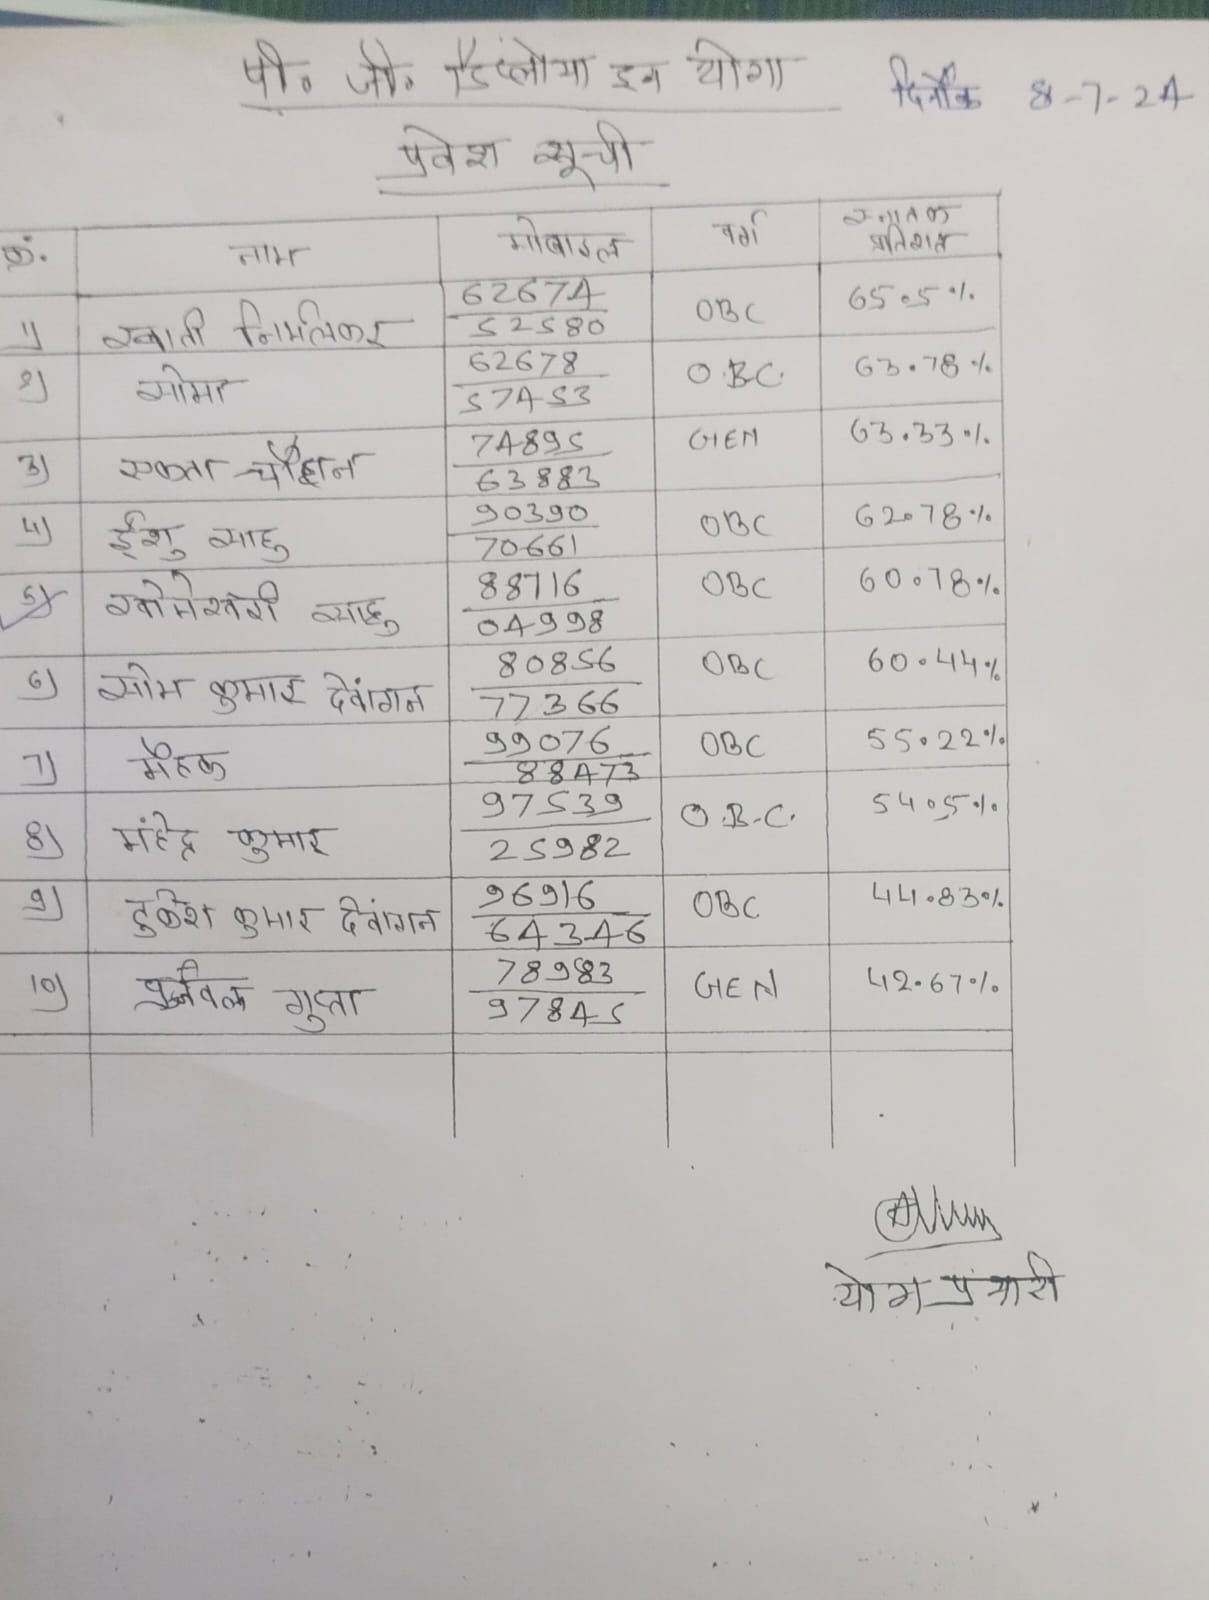 पी. जी. डिप्लोमा इन योगा
दिनाँक 8-7-24
प्रवेश सूची
क्रं. नाम मोबाइल वर्ग स्नातक प्रतिशत
1) स्वाती निर्मलकर 62674 52580 OBC 65.5%
2) सोमा 62678 57453 O.B.C. 63.78%
3) एकता चौहान 74895 63883 GEN 63.33%
4) ईशु साहु 90390 70661 OBC 62.78%
5) खोमेश्वरी साहु 88716 04998 OBC 60.78%
6) सोम कुमार देवांगन 80856 77366 OBC 60.44%
7) मैहक 99076 88473 OBC 55.22%
8) मंहेद्र कुमार 97539 25982 O.B.C. 54.5%
9) टुकेश कुमार देवांगन 96916 64346 OBC 44.83%
10) गुप्ता 78983 97845 GEN 42.67%
योग प्रभारी